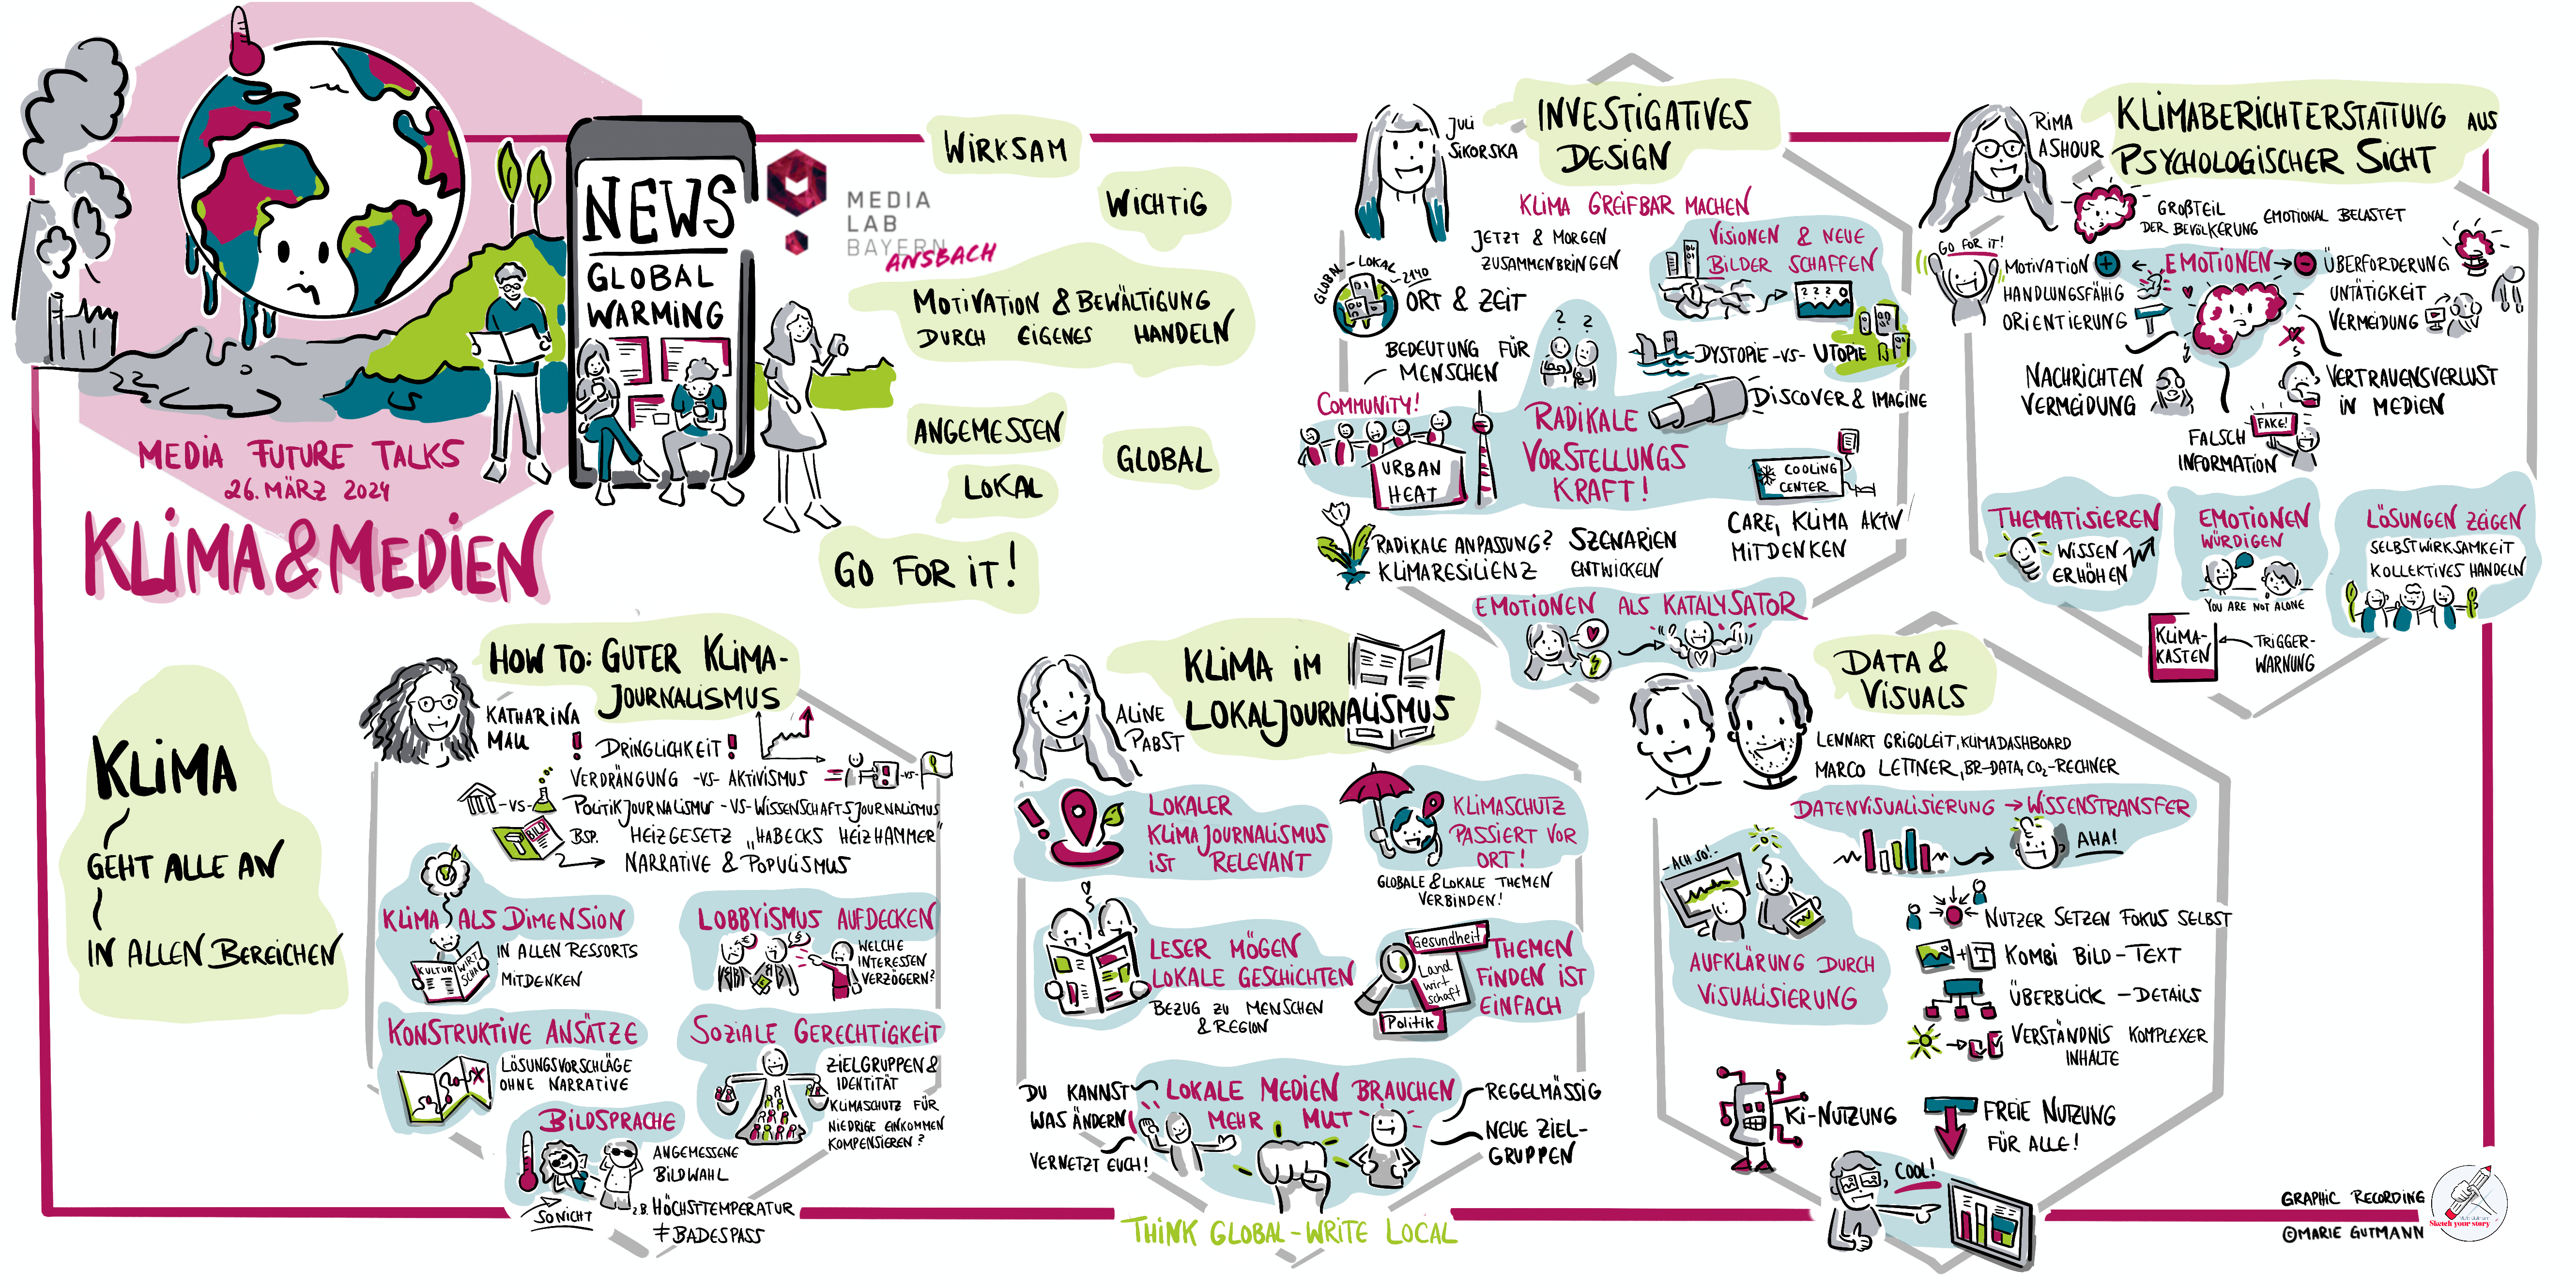 NEWS
GLOBAL
WARMING
MEDIA
LAB
BAYERN
ANSBACH
MEDIA FUTURE TALKS
26. MÄRZ 2024
KLIMA & MEDIEN
WIRKSAM
WICHTIG
MOTIVATION & BEWÄLTIGUNG
DURCH EIGENES HANDELN
ANGEMESSEN
GLOBAL
LOKAL
GO FOR IT!
KLIMA
GEHT ALLE AN
IN ALLEN BEREICHEN
JULI
SIKORSKA
INVESTIGATIVES
DESIGN
KLIMA GREIFBAR MACHEN
JETZT & MORGEN
ZUSAMMENBRINGEN
VISIONEN & NEUE
BILDER SCHAFFEN
GLOBAL-LOKAL
2140
ORT & ZEIT
2220
BEDEUTUNG FÜR
MENSCHEN
? ?
DYSTOPIE -VS- UTOPIE
COMMUNITY!
URBAN
HEAT
RADIKALE
VORSTELLUNGS
KRAFT!
DISCOVER & IMAGINE
COOLING
CENTER
CARE, KLIMA AKTIV
MITDENKEN
RADIKALE ANPASSUNG?
KLIMARESILIENZ
SZENARIEN
ENTWICKELN
EMOTIONEN ALS KATALYSATOR
RIMA
ASHOUR
KLIMABERICHTERSTATTUNG AUS
PSYCHOLOGISCHER SICHT
GROßTEIL
DER BEVÖLKERUNG EMOTIONAL BELASTET
GO FOR IT!
MOTIVATION +
HANDLUNGSFÄHIG
ORIENTIERUNG
EMOTIONEN
- ÜBERFORDERUNG
UNTÄTIGKEIT
VERMEIDUNG
NACHRICHTEN
VERMEIDUNG
FAKE!
FALSCH
INFORMATION
VERTRAUENSVERLUST
IN MEDIEN
THEMATISIEREN
WISSEN
ERHÖHEN
EMOTIONEN
WÜRDIGEN
YOU ARE NOT ALONE
LÖSUNGEN ZEIGEN
SELBSTWIRKSAMKEIT
KOLLEKTIVES HANDELN
KLIMA-
KASTEN
TRIGGER-
WARNUNG
HOW TO: GUTER KLIMA-
JOURNALISMUS
KATHARINA
MAU
! DRINGLICHKEIT!
VERDRÄNGUNG -VS- AKTIVISMUS
-VS-
-VS-
POLITIKJOURNALISMUS -VS- WISSENSCHAFTSJOURNALISMUS
BILD
BSP. HEIZGESETZ „HABECKS HEIZHAMMER"
NARRATIVE & POPULISMUS
KLIMA ALS DIMENSION
KULTUR
WIRT
SCHA
IN ALLEN RESSORTS
MITDENKEN
LOBBYISMUS AUFDECKEN
WELCHE
INTERESSEN
VERZÖGERN?
KONSTRUKTIVE ANSÄTZE
LÖSUNGSVORSCHLÄGE
OHNE NARRATIVE
SOZIALE GERECHTIGKEIT
ZIELGRUPPEN &
IDENTITÄT
KLIMASCHUTZ FÜR
NIEDRIGE EINKOMMEN
KOMPENSIEREN?
BILDSPRACHE
ANGEMESSENE
BILDWAHL
SO NICHT
Z.B. HÖCHSTTEMPERATUR
≠ BADESPASS
ALINE
PABST
KLIMA IM
LOKALJOURNALISMUS
LOKALER
KLIMAJOURNALISMUS
IST RELEVANT
KLIMASCHUTZ
PASSIERT VOR
ORT!
GLOBALE & LOKALE THEMEN
VERBINDEN!
LESER MÖGEN
LOKALE GESCHICHTEN
BEZUG ZU MENSCHEN
& REGION
Gesundheit
Land
wirt
schaft
Politik
THEMEN
FINDEN IST
EINFACH
DU KANNST
WAS ÄNDERN!
VERNETZT EUCH!
LOKALE MEDIEN BRAUCHEN
MEHR MUT
REGELMÄSSIG
NEUE ZIEL-
GRUPPEN
THINK GLOBAL - WRITE LOCAL
DATA &
VISUALS
LENNART GRIGOLEIT, KLIMADASHBOARD
MARCO LETTNER, BR-DATA, CO₂-RECHNER
DATENVISUALISIERUNG → WISSENSTRANSFER
AHA!
-ACH SO!-
AUFKLÄRUNG DURCH
VISUALISIERUNG
NUTZER SETZEN FOKUS SELBST
KOMBI BILD-TEXT
ÜBERBLICK - DETAILS
VERSTÄNDNIS KOMPLEXER
INHALTE
KI-NUTZUNG
FREIE NUTZUNG
FÜR ALLE!
COOL!
GRAPHIC RECORDING
©MARIE GUTMANN
Sketch your story